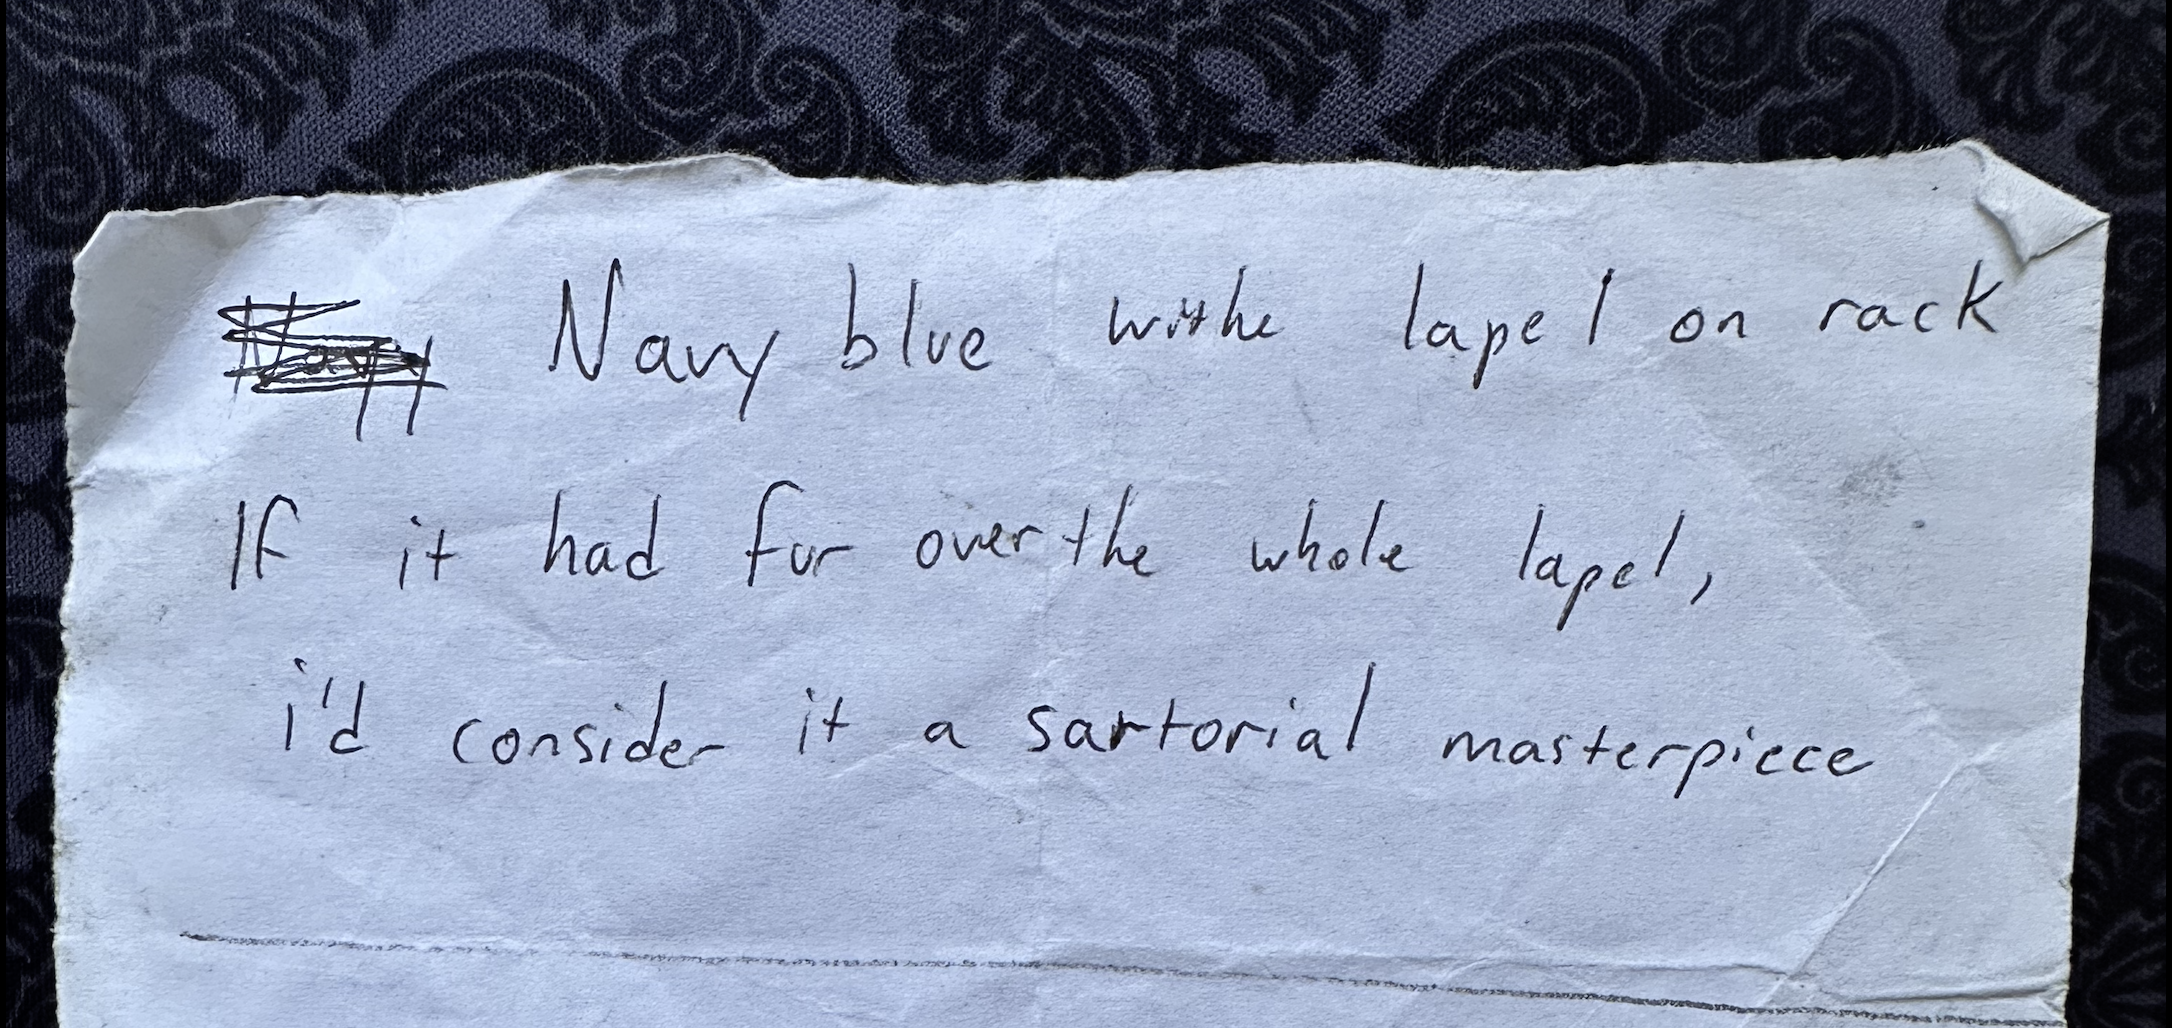 Navy blue lapel on rack
If it had fur over the whole lapel,
i'd consider it a sartorial masterpiece